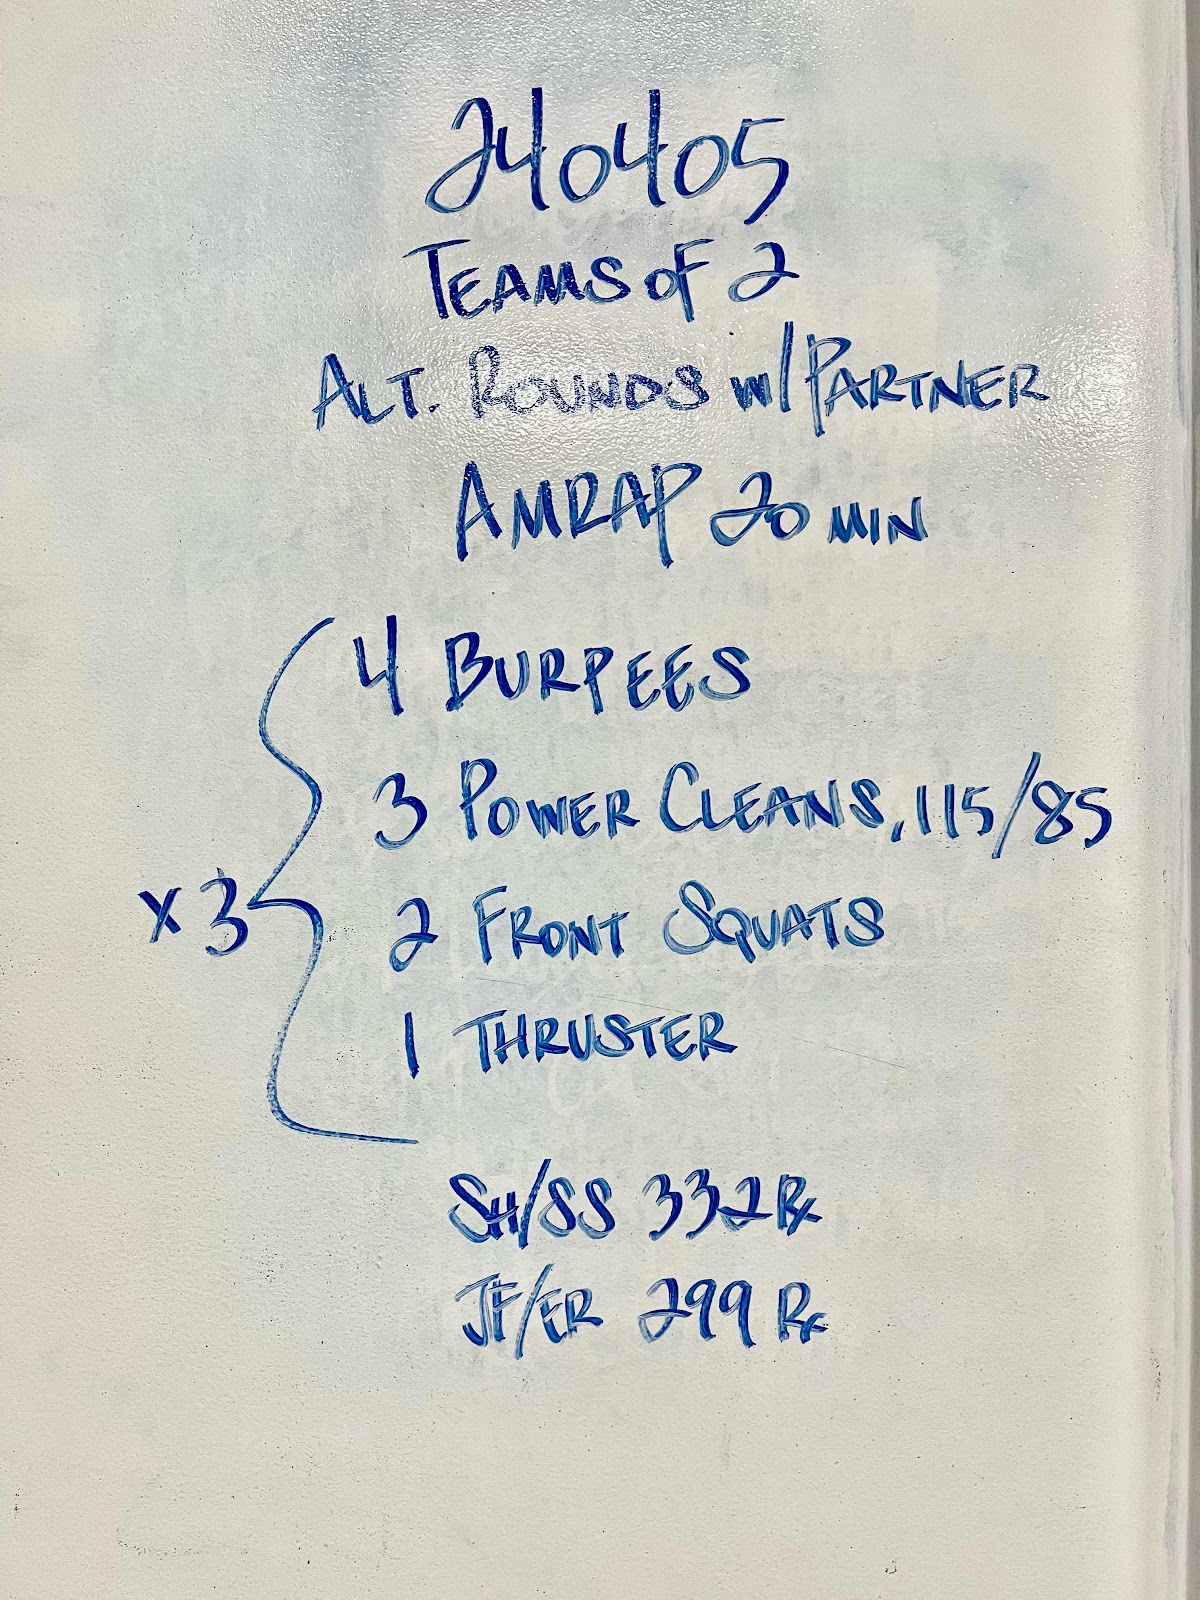 240405
TEAMS OF 2
ALT. ROUNDS W/PARTNER
AMRAP 20 MIN
4 BURPEES
3 POWER CLEANS, 115/85
x 3
2 FRONT SQUATS
1 THRUSTER
SH/SS 332 Rx
JF/ER 299 Rx